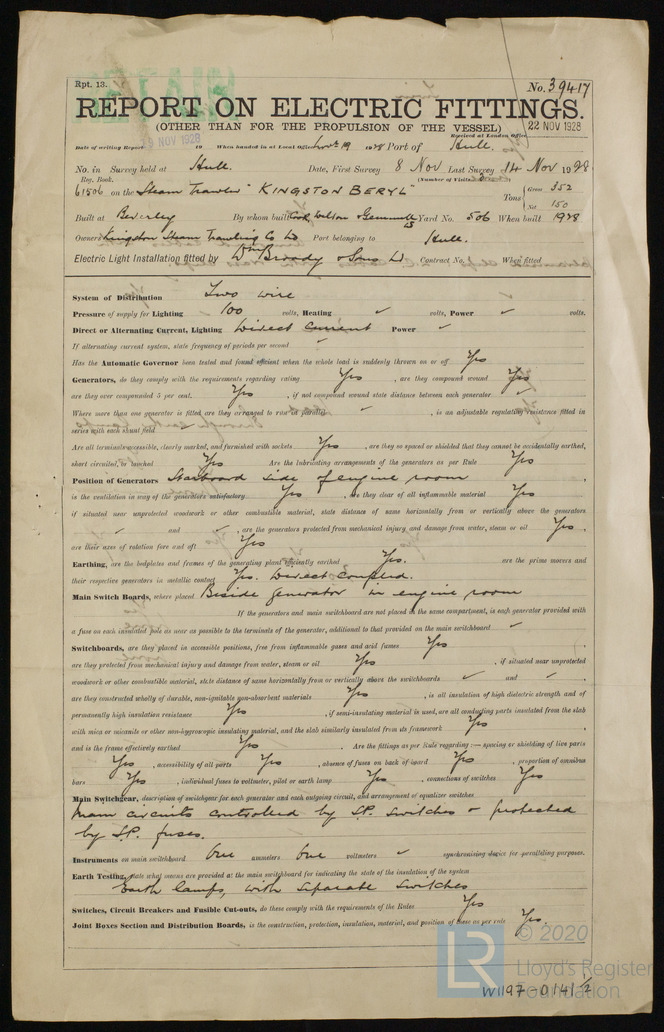 Rpt. 13.
No. 39417
REPORT ON ELECTRIC FITTINGS.
(OTHER THAN FOR THE PROPULSION OF THE VESSEL)
Received at London Office 22 NOV 1928
Date of writing Report 19 When handed in at Local Office Nov 19 1928 Port of Hull.
No. in Survey held at Hull. Date, First Survey 8 Nov Last Survey 14 Nov 1928
Reg. Book. (Number of Visits
61506 on the Steam Trawler "KINGSTON BERYL" Tons Gross 352
Net 150
Built at Beverley By whom built Cook, Welton & Gemmell Ld Yard No. 506 When built 1928
Owners Kingston Steam Trawling Co Ld Port belonging to Hull.
Electric Light Installation fitted by Wm Broady & Sons Ld Contract No. When fitted
System of Distribution Two wire
Pressure of supply for Lighting 100 volts, Heating ✓ volts, Power ✓ volts.
Direct or Alternating Current, Lighting Direct Current Power ✓
If alternating current, state frequency of periods per second ✓
Has the Automatic Governor been tested and found efficient when the whole load is suddenly thrown on or off Yes
Generators, do they comply with the requirements regarding rating Yes, are they compound wound Yes
are they over compounded 5 per cent. Yes, if not compound wound state distance between each generator ✓
Where more than one generator is fitted are they arranged to run in parallel ✓, is an adjustable regulating resistance fitted in
series with each shunt field
Are all terminals accessible, clearly marked, and furnished with sockets Yes, are they so spaced or shielded that they cannot be accidentally earthed,
short circuited, or touched Yes Are the lubricating arrangements of the generators as per Rule Yes
Position of Generators Starboard side of engine room
is the ventilation in way of the generators satisfactory Yes, are they clear of all inflammable material Yes
if situated near unprotected woodwork or other combustible material, state distance of same horizontally from or vertically above the generators
✓ and ✓, are the generators protected from mechanical injury and damage from water, steam or oil Yes.
are their axes of rotation fore and aft Yes
Earthing, are the bedplates and frames of the generating plant efficiently earthed Yes. are the prime movers and
their respective generators in metallic contact Yes. Direct coupled.
Main Switch Boards, where placed Beside generator in engine room
If the generators and main switchboard are not placed in the same compartment, is each generator provided with
a fuse on each insulated pole as near as possible to the terminals of the generator, additional to that provided on the main switchboard ✓
Switchboards, are they placed in accessible positions, free from inflammable gases and acid fumes Yes
are they protected from mechanical injury and damage from water, steam or oil Yes, if situated near unprotected
woodwork or other combustible material, state distance of same horizontally from or vertically above the switchboards ✓ and ✓,
are they constructed wholly of durable, non-ignitable non-absorbent materials Yes, is all insulation of high dielectric strength and of
permanently high insulation resistance Yes, if semi-insulating material is used, are all conducting parts insulated from the slab
with mica or micanite or other non-hygroscopic insulating material, and the slab similarly insulated from its framework Yes
and is the frame effectively earthed Yes. Are the fittings as per Rule regarding:— spacing or shielding of live parts
Yes, accessibility of all parts Yes, absence of fuses on back of board Yes, proportion of omnibus
bars Yes, individual fuses to voltmeter, pilot or earth lamp Yes, connections of switches Yes
Main Switchgear, description of switchgear for each generator and each outgoing circuit, and arrangement of equalizer switches
Main circuits controlled by S.P. switches & protected
by S.P. fuses.
Instruments on main switchboard One ammeters One voltmeters ✓ synchronising device for paralleling purposes.
Earth Testing, state what means are provided at the main switchboard for indicating the state of the insulation of the system
Earth lamps, with separate switches
Switches, Circuit Breakers and Fusible Cut-outs, do these comply with the requirements of the Rules Yes
Joint Boxes Section and Distribution Boards, is the construction, protection, insulation, material, and position of these as per rule Yes.
© 2020
LR
Lloyd's Register
Foundation
W1197-0141 1/2